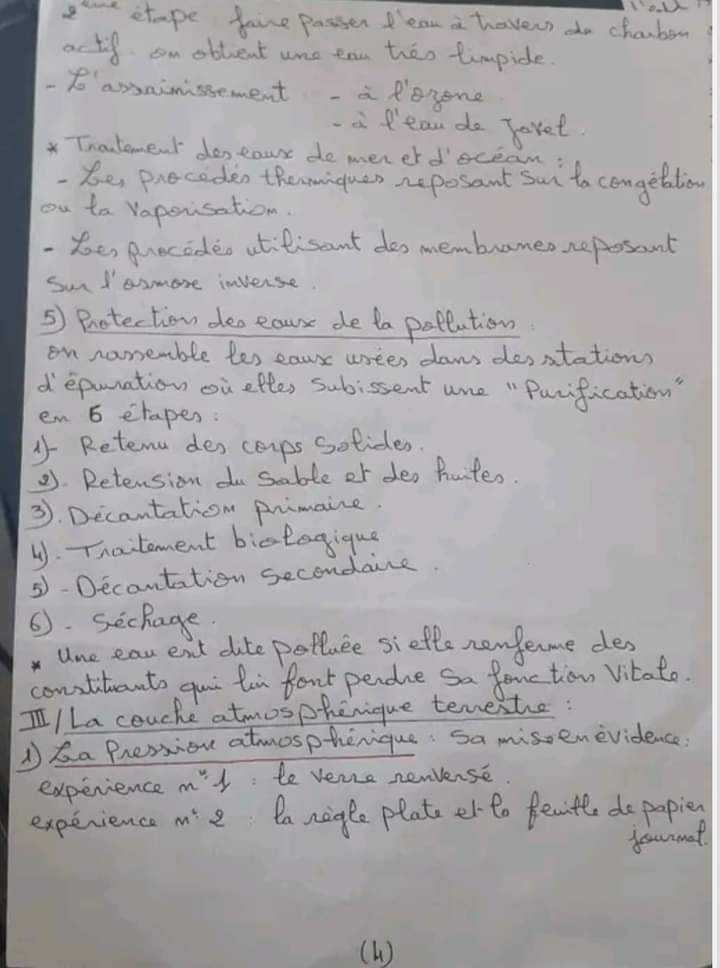 2ème étape : faire passer l'eau à travers du charbon
actif. on obtient une eau très limpide.
- L'assainissement - à l'ozone.
- à l'eau de Javel.
* Traitement des eaux de mer et d'océan :
- Les procédés thermiques reposant sur la congélation
ou la vaporisation.
- Les procédés utilisant des membranes reposant
sur l'osmose inverse.
5) Protection des eaux de la pollution :
on rassemble les eaux usées dans des stations
d'épuration où elles subissent une "Purification"
en 6 étapes :
1)- Retenu des corps solides.
2). Retension du sable et des huiles.
3). Décantation primaire.
4). Traitement biologique
5) - Décantation secondaire.
6) - Séchage.
* Une eau est dite polluée si elle renferme des
constituants qui lui font perdre sa fonction vitale.
III/ La couche atmosphérique terrestre :
1) La Pression atmosphérique : sa mise en évidence :
expérience n° 1 : le verre renversé.
expérience n° 2 : la règle plate et la feuille de papier
journal.
(4)